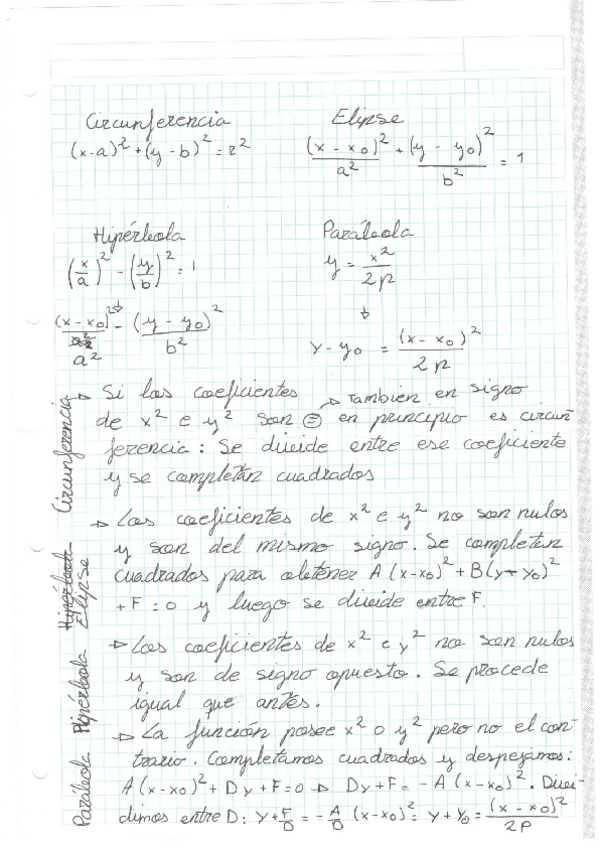 Circunferencia
(x-a)² + (y-b)² = r²
Elipse
(x-x₀)²/a² + (y-y₀)²/b² = 1
Hipérbola
(x/a)² - (y/b)² = 1
(x-x₀)²/a² - (y-y₀)²/b²
Parábola
y = x²/2p
↓
y-y₀ = (x-x₀)²/2p
Circunferencia
→ Si los coeficientes → También en signo
de x² e y² son ⊜ en principio es circun
ferencia: Se divide entre ese coeficiente
y se completan cuadrados
Elipse
→ Los coeficientes de x² e y² no son nulos
y son del mismo signo. Se completan
cuadrados para obtener A(x-x₀)² + B(y-y₀)²
+ F = 0 y luego se divide entre F.
Hipérbola
→ Los coeficientes de x² e y² no son nulos
y son de signo opuesto. Se procede
igual que antes.
Parábola
→ La función posee x² o y² pero no el con
trario. Completamos cuadrados y despejamos:
A(x-x₀)² + Dy + F = 0 → Dy + F = -A(x-x₀)². Divi
dimos entre D: y + F/D = -A/D (x-x₀)² = y + y₀ = (x-x₀)²/2P